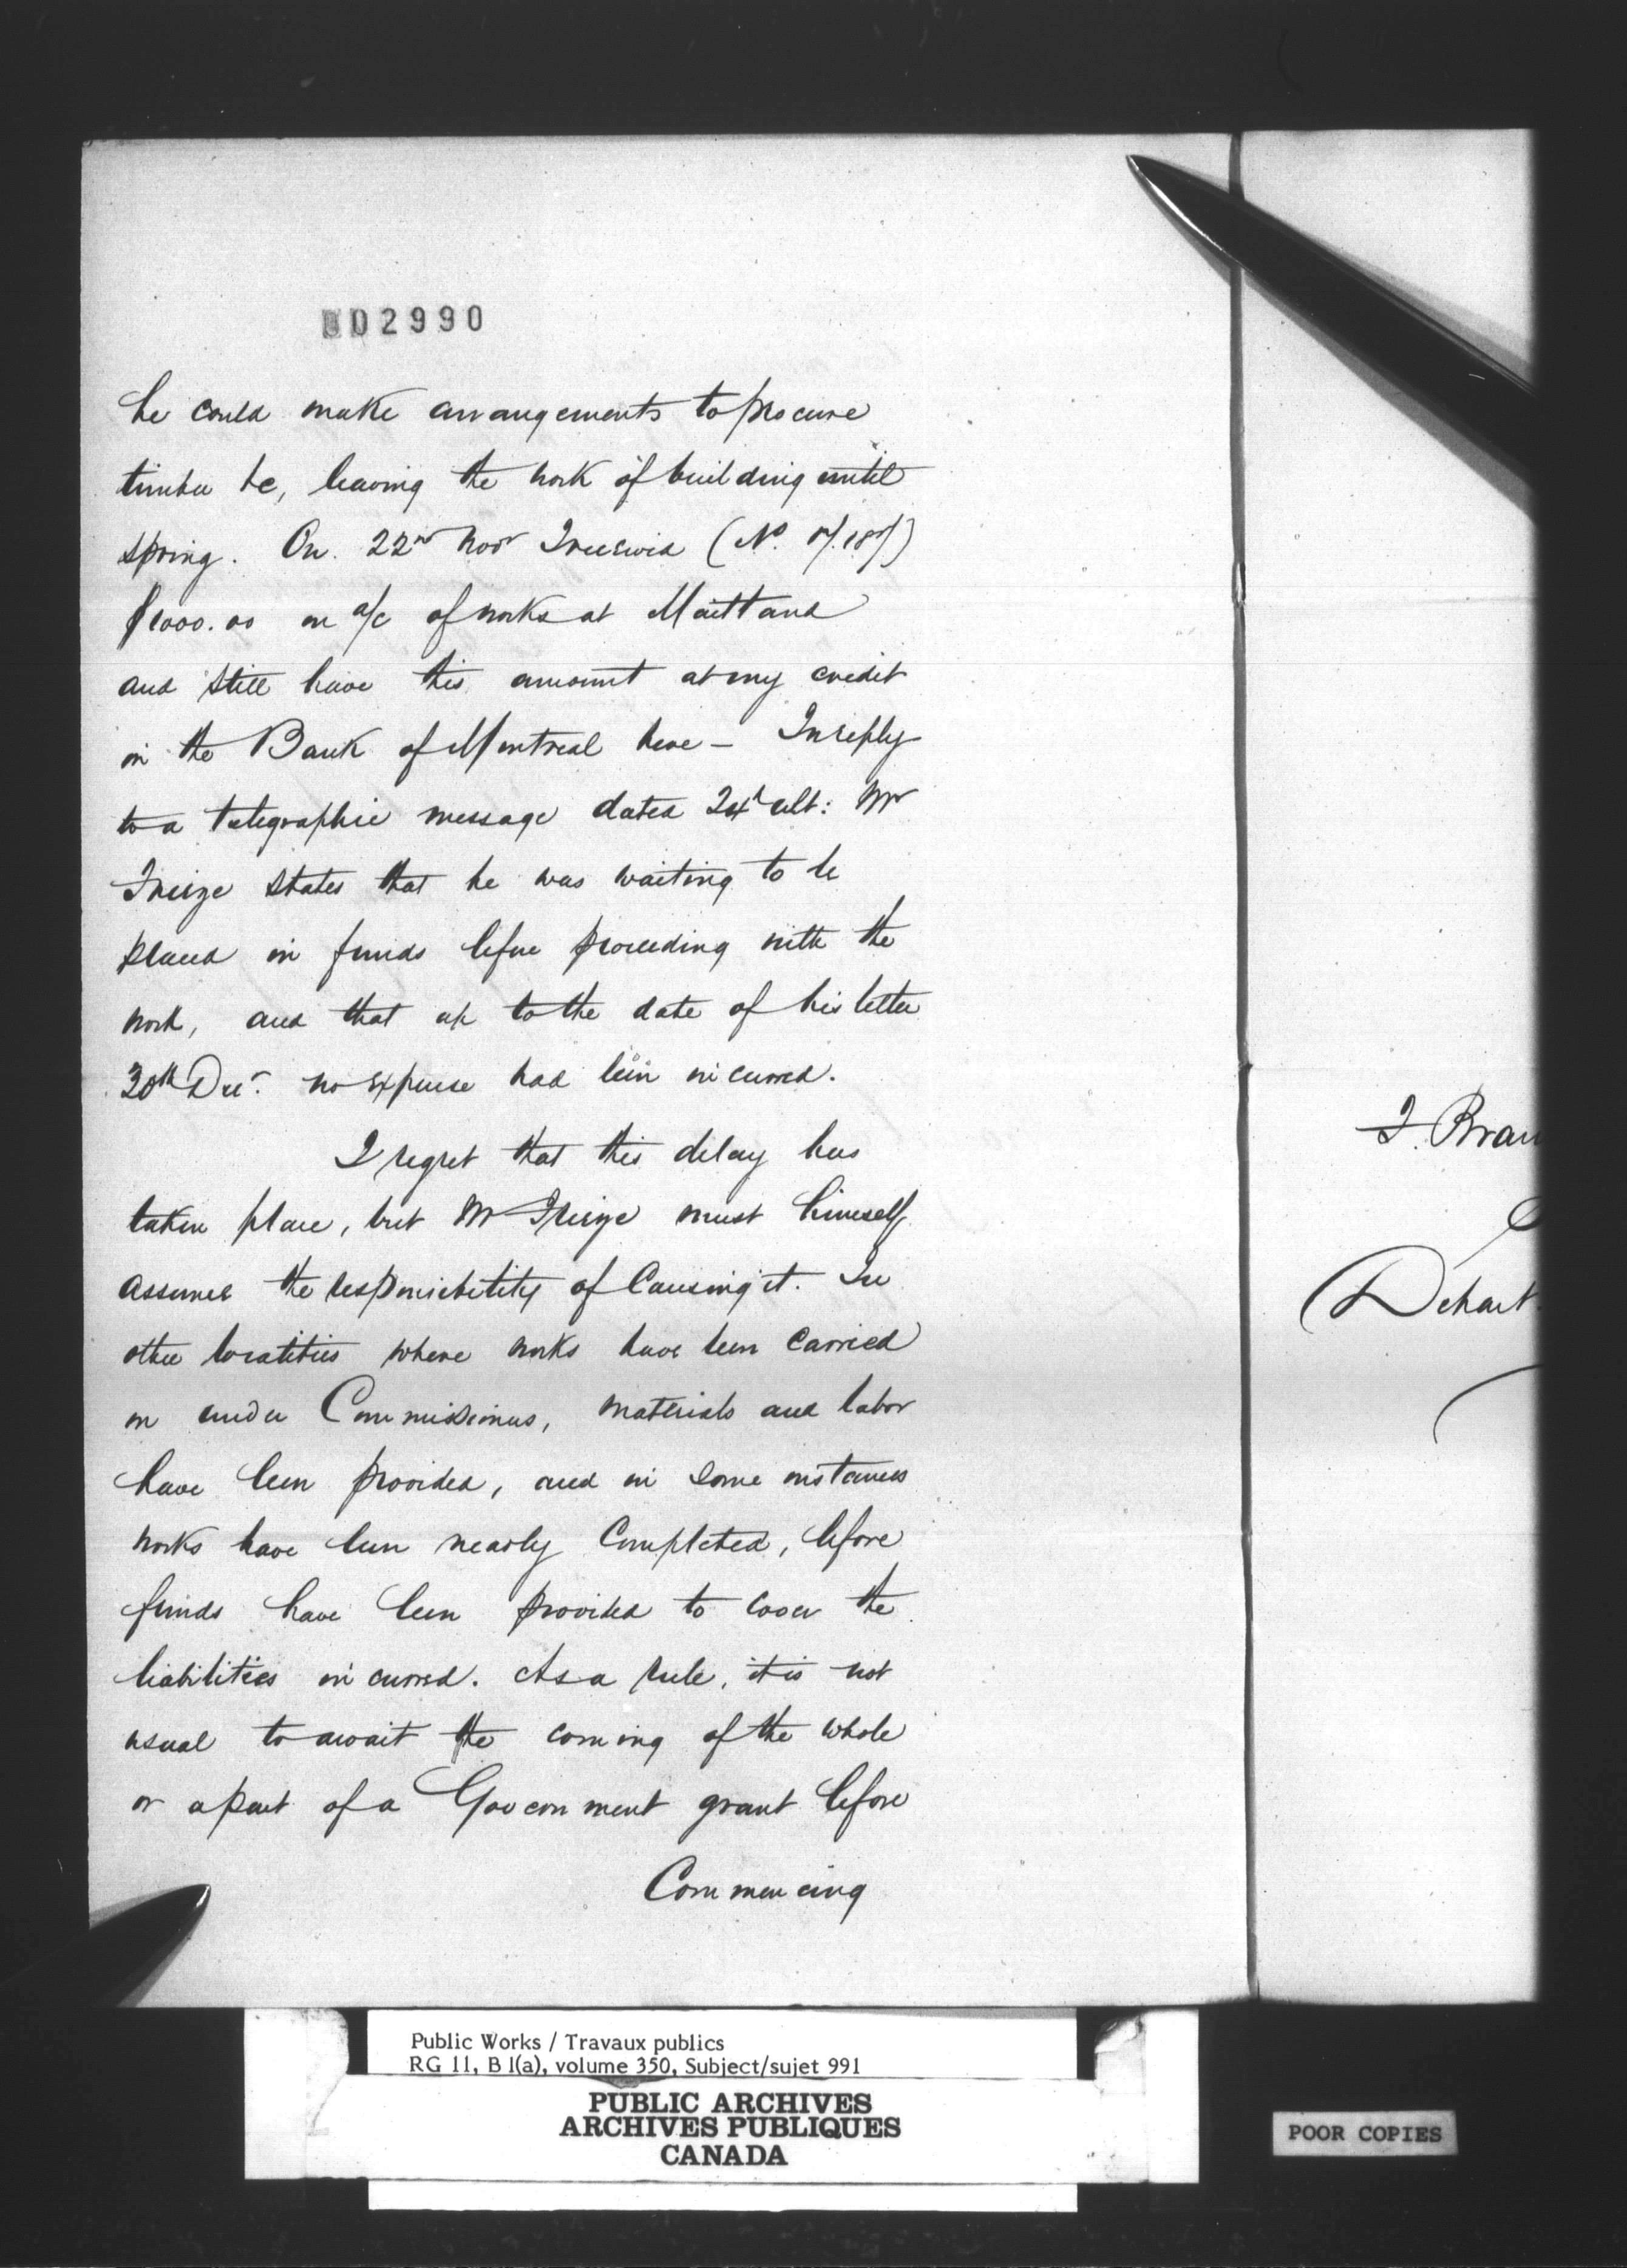 02990
he could make arrangements to procure
timber &c, leaving the work of building until
spring. On 22nd Novr I received (No.
$1000.00 on a/c of works at Maitland
and still have this amount at my credit
in the Bank of Montreal here — In reply
to a telegraphic message dated 24th ult: Mr
Frieze states that he was waiting to be
placed in funds before proceeding with the
work, and that up to the date of his letter
30th Decr. no expense had been incurred.
I regret that this delay has
taken place, but Mr Frieze must himself
assume the responsibility of Causing it. In
other localities where works have been Carried
on under Commissioners, materials and labor
have been provided, and in some instances
works have been nearly Completed, before
funds have been provided to cover the
liabilities incurred. As a rule, it is not
usual to await the coming of the whole
or a part of a Government grant before
Commencing
F. Brau
Depart.
Public Works / Travaux publics
RG 11, B 1(a), volume 350, Subject/sujet 991
PUBLIC ARCHIVES
ARCHIVES PUBLIQUES
CANADA
POOR COPIES